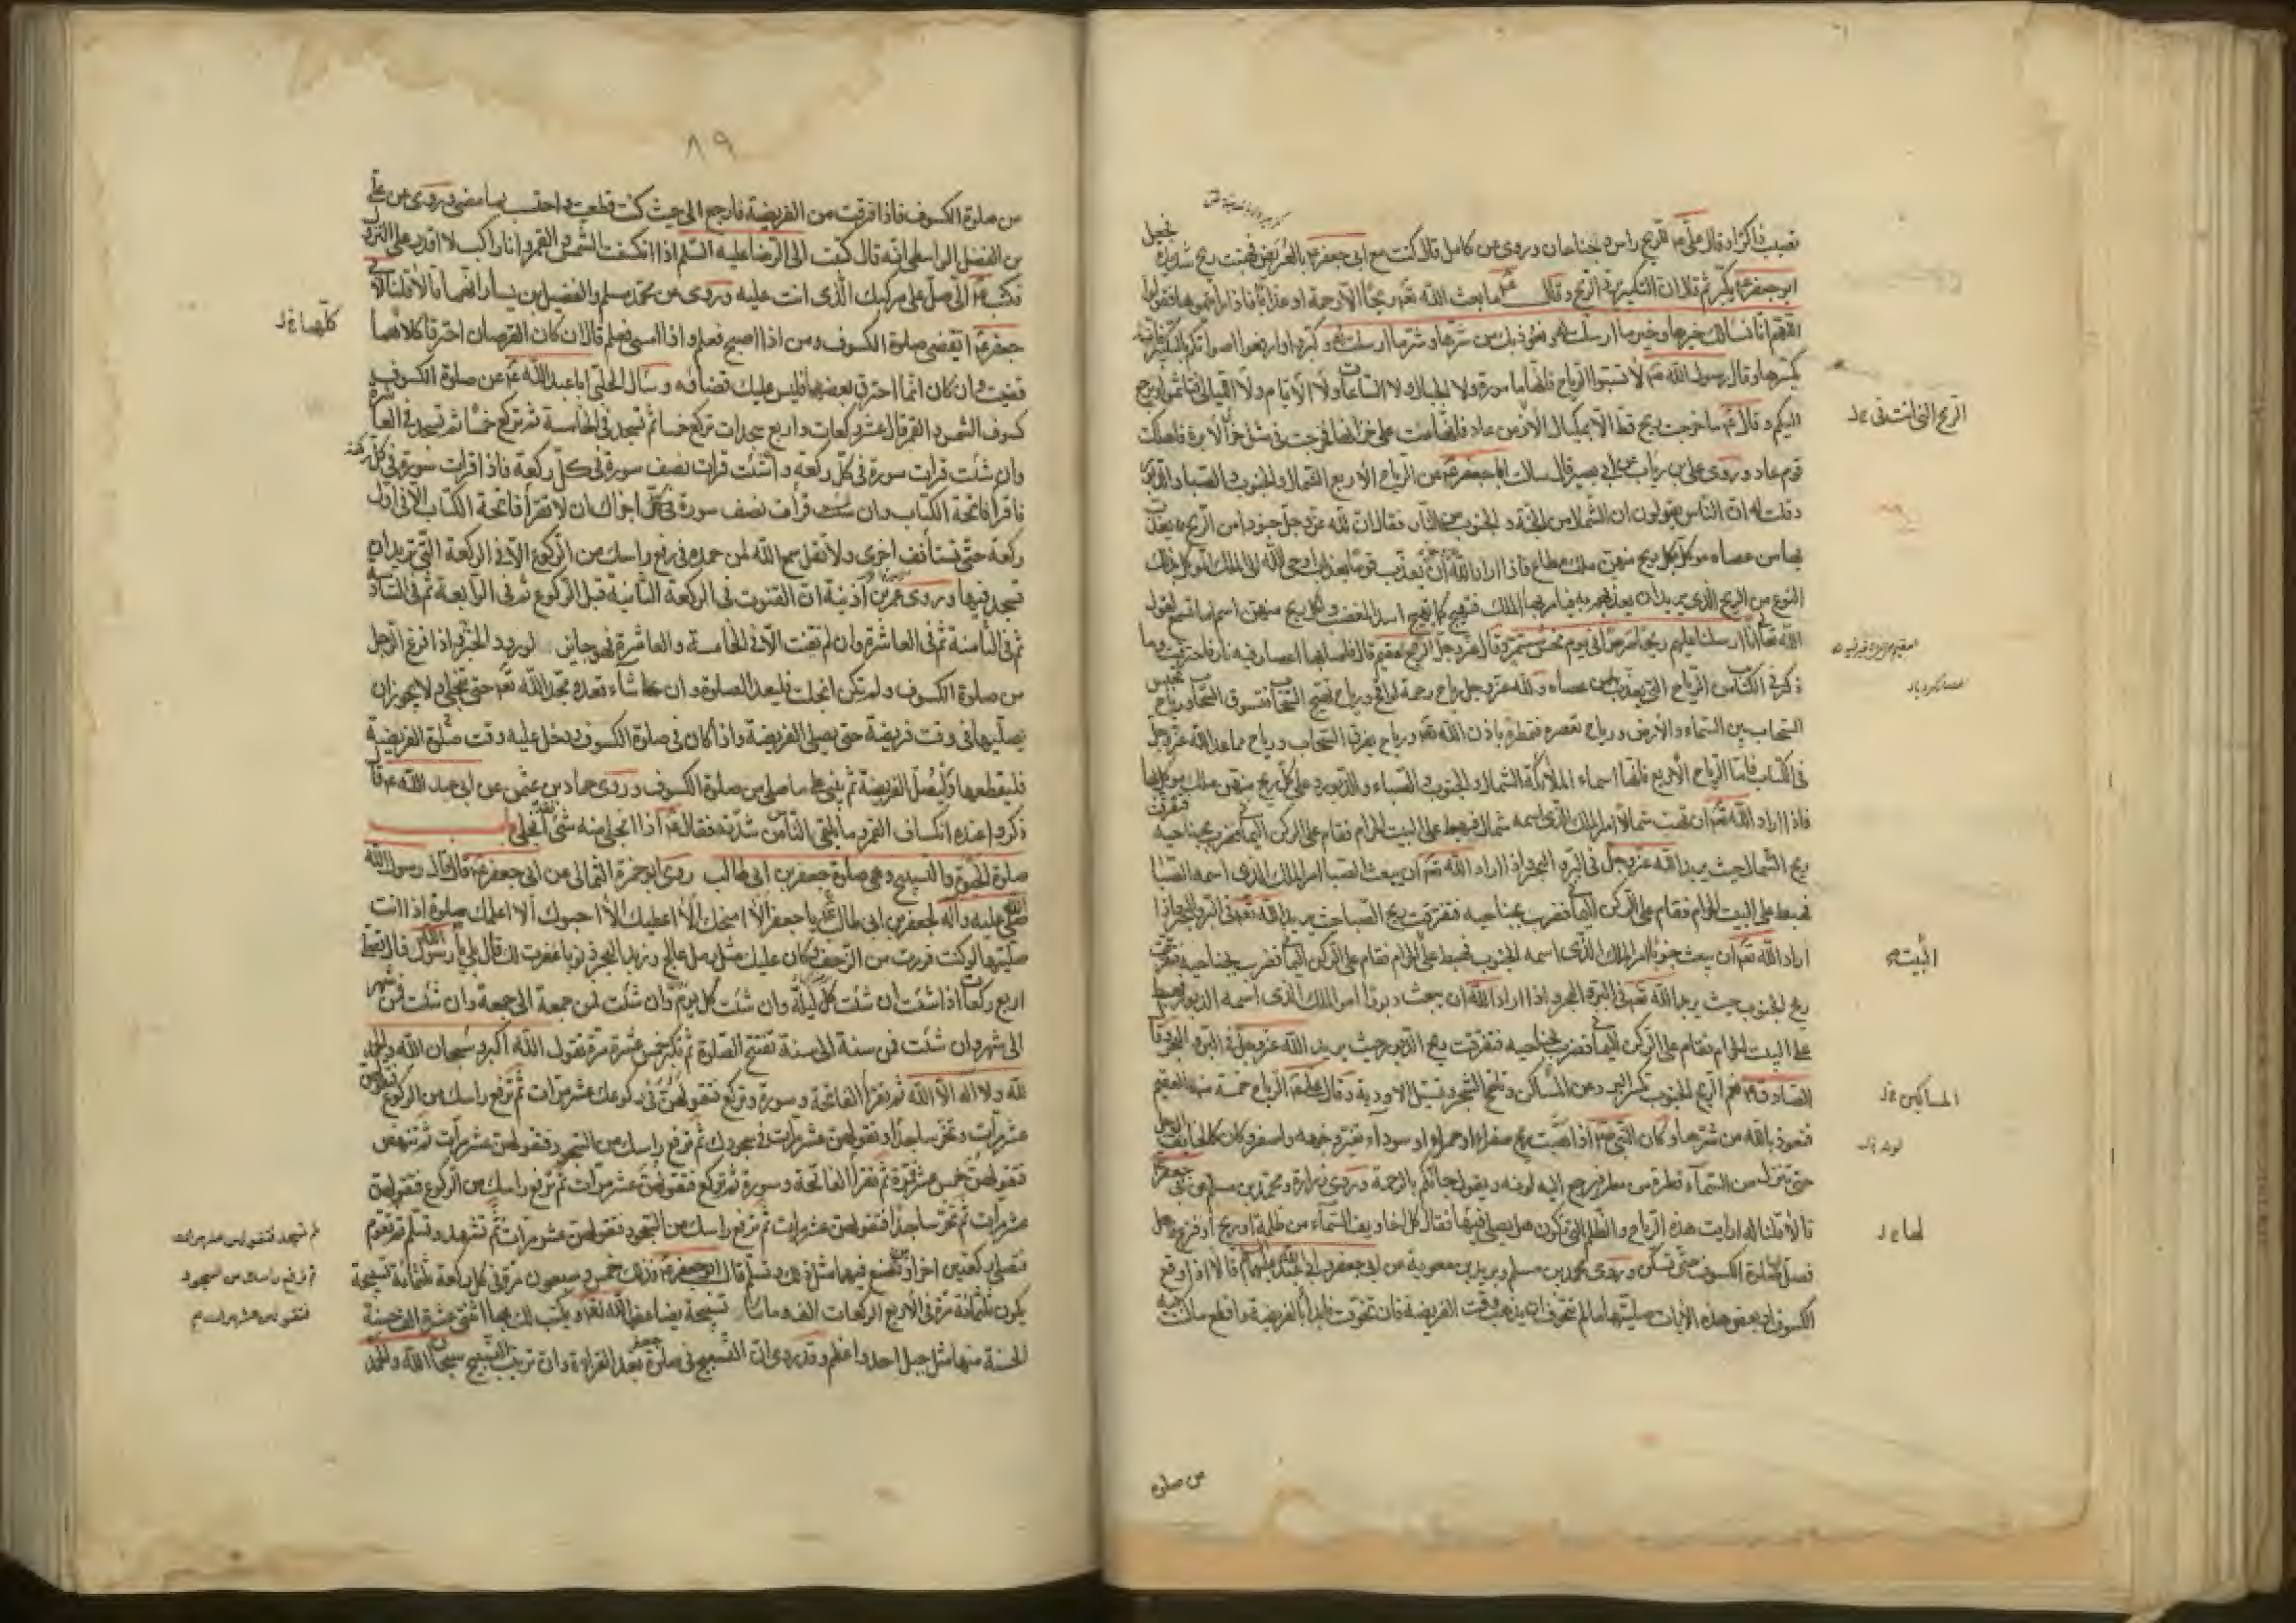 تصيب ذاكرا وقال علي ع للريح راس وجناحان وروى عن كامل قال كنت مع ابي جعفر ع بالعريض فهبت ريح شديدة فجعل
ابو جعفر ع يكبر ثم قال ان التكبير يرد الريح وقال ع ما بعث الله تعه ريحا الا رحمة او عذابا فاذا رايتموها فقولوا
اللهم انا نسالك خيرها وخير ما ارسلت له ونعوذ بك من شرها وشر ما ارسلت له وكبروا وارفعوا اصواتكم بالتكبير فانه
يكسرها وقال رسول الله ص لا تسبوا الرياح فانها مامورة ولا الجبال ولا الساعات ولا الايام ولا الليالي فتاثموا ويرجع
اليكم وقال ع ما خرجت ريح قط الا بمكيال الا زمن عاد فانها عتت على خزانها فخرجت في مثل خرق الابرة فاهلكت
الريح التي
قوم عاد وروى علي بن رياب عن ابي بصير قال سالت ابا جعفر ع عن الرياح الاربع الشمال والجنوب والصبا والدبور
وقلت له ان الناس يقولون ان الشمال من الجنة والجنوب من النار فقال ان لله عز وجل جنودا من الريح يعذب
بها من عصاه موكل بكل ريح منهن ملك مطاع فاذا اراد الله ان يعذب قوما بعذاب اوحى الله الى الملك الموكل بذلك
النوع من الريح الذي يريد ان يعذبهم به فيامر بها الملك فتهيج كما يهيج الاسد المغضب ولكل ريح منهن اسم اما تسمع لقول
الله تعالى انا ارسلنا عليهم ريحا صرصرا في يوم نحس مستمر وقال عز وجل الريح العقيم وقال فاصابها اعصار فيه نار فاحترقت وما
ذكر في الكتاب من الرياح التي يعذب بها من عصاه ولله عز وجل رياح رحمة لواقح ورياح تهيج السحاب فتسوق السحاب ورياح تحبس
السحاب بين السماء والارض ورياح تعصره فتمطره باذن الله تعه ورياح تفرق السحاب ورياح مما عد الله عز وجل
في الكتاب فاما الرياح الاربع فانها اسماء الملائكة الشمال والجنوب والصباء والدبور وعلى كل ريح منهن ملك موكل بها
فاذا اراد الله تعه ان يهب شمالا امر الملك الذي اسمه شمال فهبط على البيت الحرام فقام على الركن اليماني فضرب بجناحيه فتفرقت
ريح الشمال حيث يريد الله عز وجل في البر والبحر واذا اراد الله تعه ان يبعث الصبا امر الملك الذي اسمه الصبا
فهبط على البيت الحرام فقام على الركن اليماني فضرب بجناحيه فتفرقت ريح الصبا حيث يريد الله تعه في البر والبحر واذا
اراد الله تعه ان يبعث جنوبا امر الملك الذي اسمه الجنوب فهبط على الحرام فقام على الركن اليماني فضرب بجناحيه فتفرقت
البيت
ريح الجنوب حيث يريد الله تعه في البر والبحر واذا اراد الله ان يبعث دبورا امر الملك الذي اسمه الدبور فهبط
على البيت الحرام فقام على الركن اليماني فضرب بجناحيه فتفرقت ريح الدبور حيث يريد الله عز وجل في البر والبحر وقال
الصادق ع نعم الريح الجنوب تكسر البرد عن المساكن وتلقح الشجر وتسيل الاودية وقال علي ع الرياح خمسة منها العقيم
المساكين
فنعوذ بالله من شرها وكان النبي ص اذا هبت ريح صفراء او حمراء او سوداء تغير وجهه واصفر وكان كالخايف الوجل
حتى تنزل من السماء قطرة من مطر فيرجع اليه لونه ويقول جاتكم بالرحمة وروى زرارة ومحمد بن مسلم عن ابي جعفر ع
قالا قلنا له ارايت هذه الرياح والظلم التي تكون هل يصلى فيها فقال كل اخاويف السماء من ظلمة او ريح او فزع فصل
لها
فصل لها صلوة الكسوف حتى تسكن وروى محمد بن مسلم وبريد بن معوية عن ابي جعفر وابي عبد الله عليهما السلام قالا اذا وقع
الكسوف او بعض هذه الايات صليتها ما لم تتخوف ان يذهب وقت الفريضة فان تخوفت فابدأ بالفريضة واقطع ما كنت فيه
من صلوة
٨٩
من صلوة الكسوف فاذا فرغت من الفريضة فارجع الى حيث كنت قطعت واحتسب بما مضى وروى عن علي
بن الفضل الواسطي انه قال كتبت الى الرضا عليه السلم اذا انكسفت الشمس او القمر وانا راكب لا اقدر على النزول
فكتب ع الي صل على مركبك الذي انت عليه وروى عن محمد بن مسلم والفضيل بن يسار انهما قالا قلنا لابي
جعفر ع ايقضى صلوة الكسوف ومن اذا اصبح فعلم واذا امسى فعلم قال ان كان القرصان احترقا كلاهما
كلها
قضيت وان كان انما احترق بعضها فليس عليك قضاؤه وسال الحلبي ابا عبد الله ع عن صلوة الكسوف
كسوف الشمس والقمر قال عشر ركعات واربع سجدات تركع خمسا ثم تسجد في الخامسة ثم تركع خمسا ثم تسجد في العاشرة
وان شئت قرات سورة في كل ركعة وان شئت قرات نصف سورة في كل ركعة فاذا قرات سورة في كل ركعة
فاقرأ فاتحة الكتاب وان شئت قرأت نصف سورة في كل اجزاك ان لا تقرأ فاتحة الكتاب الا في اول
ركعة حتى تستأنف اخرى ولا تقل سمع الله لمن حمده في رفع راسك من الركوع الا في الركعة التي تريد ان
تسجد فيها وروى عمر بن اذينة ان القنوت في الركعة الثانية قبل الركوع ثم في الرابعة ثم في السادسة
ثم في الثامنة ثم في العاشرة وان لم تقنت الا في الخامسة والعاشرة فهو جايز لورود الخبر به واذا فرغ الرجل
من صلوة الكسوف ولم تكن انجلت فليعد الصلوة وان شاء قعد ومجد الله تعه حتى ينجلي ولا يجوز ان
يصليها في وقت فريضة حتى يصلي الفريضة واذا كان في صلوة الكسوف ودخل عليه وقت صلوة الفريضة
فليقطعها وليصل الفريضة ثم يبني على ما صلى من صلوة الكسوف وروى حماد بن عثمن عن ابي عبد الله ع قال
ذكروا عنده انكساف القمر وما يلقى الناس من شدته فقال ع اذا انجلى منه شئ فقد انجلى
صلوة الحبوة والتسبيح وهي صلوة جعفر بن ابي طالب روى ابو حمزة الثمالي عن ابي جعفر ع قال قال رسول الله
صلى الله عليه وآله لجعفر بن ابي طالب يا جعفر الا امنحك الا اعطيك الا احبوك الا اعلمك صلوة اذا انت
صليتها لو كنت فررت من الزحف وكان عليك مثل رمل عالج وزبد البحر ذنوبا غفرت لك قال بلى يا رسول الله قال تصلي
اربع ركعات اذا شئت ان شئت كل ليلة وان شئت كل يوم وان شئت فمن جمعة الى جمعة وان شئت فمن شهر
الى شهر وان شئت فمن سنة الى سنة تفتتح الصلوة ثم تكبر خمس عشرة مرة تقول الله اكبر وسبحان الله والحمد
لله ولا اله الا الله ثم تقرأ الفاتحة وسورة وتركع فتقولهن في ركوعك عشر مرات ثم ترفع راسك من الركوع فتقولهن
عشر مرات وتخر ساجدا وتقولهن عشر مرات في سجودك ثم ترفع راسك من السجود فتقولهن عشر مرات ثم تنهض
فتقولهن خمس عشرة مرة ثم تقرأ الفاتحة وسورة ثم تركع فتقولهن عشر مرات ثم ترفع راسك من الركوع فتقولهن
عشر مرات ثم تخر ساجدا فتقولهن عشر مرات ثم ترفع راسك من السجود فتقولهن عشر مرات ثم تتشهد وتسلم ثم تقوم
ثم تسجد فتقولهن عشر مرات
ثم ترفع راسك من السجود
فتقولهن عشر مرات
فتصلي ركعتين اخراوين تصنع فيهما مثل ذلك وتسلم قال ابو جعفر ع فذلك خمس وسبعون مرة في كل ركعة ثلثمائة تسبيحة
يكون ثلثمائة مرة في الاربع الركعات الف ومائتا تسبيحة يضاعفها الله تعه ويكتب لك بها اثنتي عشرة الف حسنة
الحسنة منها مثل جبل احد واعظم وقد روى ان التسبيح في صلوة جعفر بعد القراءة وان ترتيب التسبيح سبحان الله والحمد